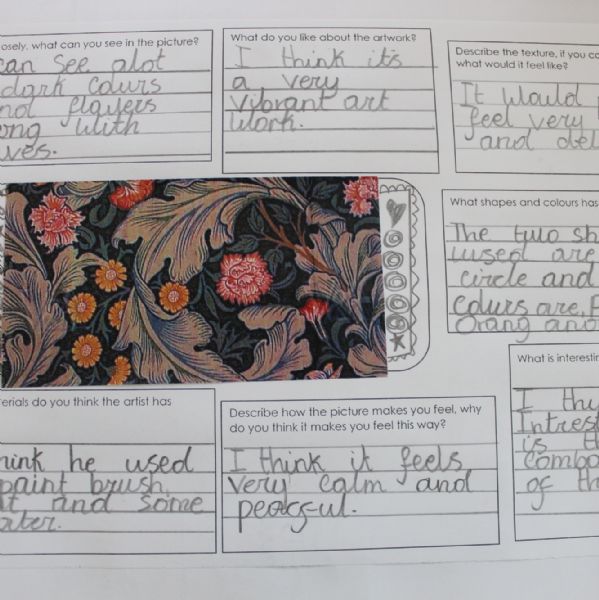 osely, what can you see in the picture?
can see alot
dark colurs
and flayers
ong with
ves.
What do you like about the artwork?
I think it's
a very
vibrant art
work.
Describe the texture, if you co
what would it feel like?
It would
feel very
and del
What shapes and colours has
The two sh
uused are
circle and
Colurs are.
Orang and
erials do you think the artist has
hink he used
paint brush.
t and some
ater.
Describe how the picture makes you feel, why
do you think it makes you feel this way?
I think it feels
very calm and
peacful.
What is interestin
I thi
Intrest
is th
combo
of th